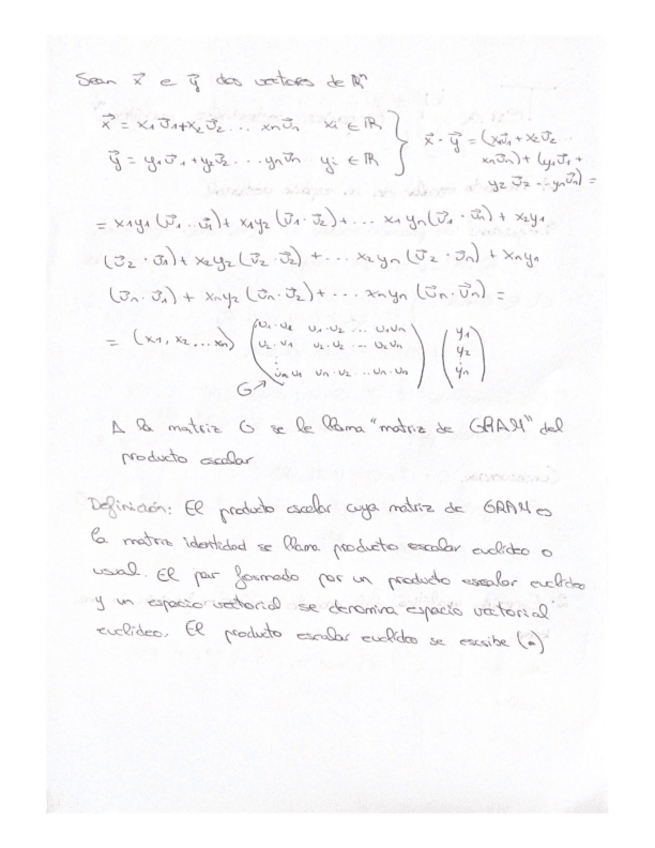 Sean x⃗ e y⃗ dos vectores de ℝⁿ
x⃗ = x₁v⃗₁+x₂v⃗₂ ... xₙv⃗ₙ xᵢ ∈ ℝ
y⃗ = y₁v⃗₁+y₂v⃗₂ ... yₙv⃗ₙ yᵢ ∈ ℝ
x⃗ · y⃗ = (x₁v⃗₁ + x₂v⃗₂ ...
xₙv⃗ₙ) + (y₁v⃗₁ +
y₂v⃗₂ ... yₙv⃗ₙ) =
= x₁y₁ (v⃗₁ · v⃗₁) + x₁y₂ (v⃗₁ · v⃗₂) + ... x₁yₙ (v⃗₁ · v⃗ₙ) + x₂y₁
(v⃗₂ · v⃗₁) + x₂y₂ (v⃗₂ · v⃗₂) + ... x₂yₙ (v⃗₂ · v⃗ₙ) + xₙy₁
(v⃗ₙ · v⃗₁) + xₙy₂ (v⃗ₙ · v⃗₂) + ... xₙyₙ (v⃗ₙ · v⃗ₙ) =
= (x₁, x₂ ... xₙ) (v₁·v₂ v₁·v₂ ... v₁vₙ) (y₁)
v₂·v₁ v₂·v₂ ... v₂vₙ y₂
vₙv₁ vₙ·v₂ ... vₙ·vₙ yₙ
G
A la matriz G se le llama "matriz de GRAM" del
producto escalar
Definición: El producto escalar cuya matriz de GRAM es
la matriz identidad se llama producto escalar euclideo o
usual. El par formado por un producto escalar euclideo
y un espacio vectorial se denomina espacio vectorial
euclideo. El producto escalar euclideo se escribe (·)